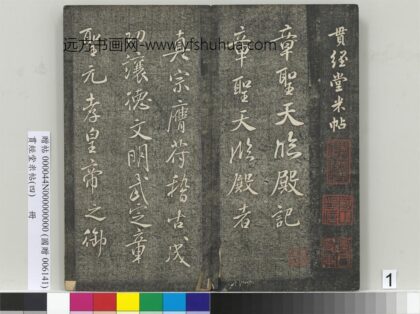 贯经堂米帖
章聖天臨殿記
章聖天臨殿者
真宗膺符稽古成
功讓德文明武定章
聖元孝皇帝之御
远方书画网-www.yfshuhua.com
贈帖 000044N000000000 (國贈 006141)
貫經堂米帖(四) 冊
1